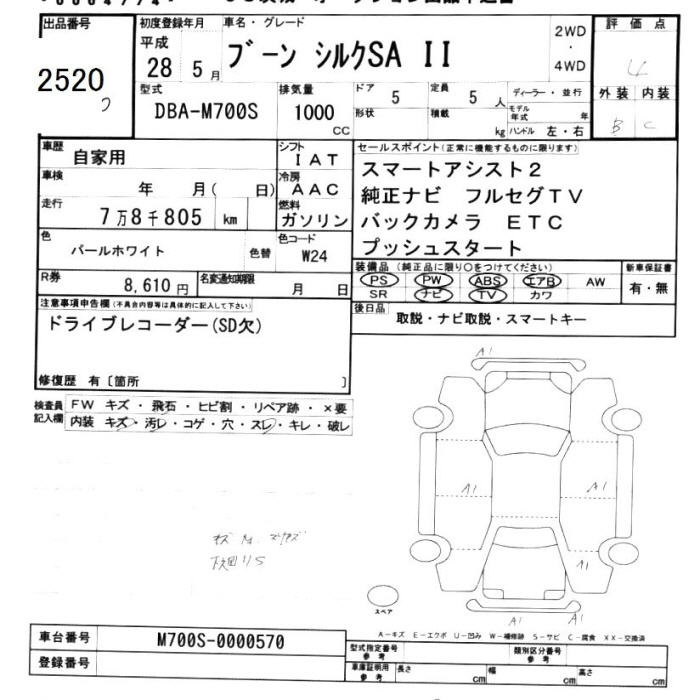 出品番号
2520
初度登録年月
平成
28 年 5 月
車名・グレード
ブーン シルクSA II
2WD
・
4WD
評価点
4
外装 内装
B C
型式
DBA-M700S
排気量
1000
CC
ドア
5
定員
5 人
ディーラー・並行
形状
積載
kg
モデル年式 年
ハンドル 左・右
車歴
自家用
シフト
IAT
車検
年 月( 日)
冷房
AAC
走行
7万8千805 km
燃料
ガソリン
色
パールホワイト
色替
色コード
W24
R券
8,610円
名変通知期限
月 日
セールスポイント(正常に機能するものに限ります)
スマートアシスト2
純正ナビ フルセグTV
バックカメラ ETC
プッシュスタート
装備品(純正品に限り○をつけてください)
PS PW ABS エアB AW
SR ナビ TV カワ
新車保証書
有・無
後日品
取説・ナビ取説・スマートキー
注意事項申告欄(不具合内容等は具体的に記入して下さい)
ドライブレコーダー(SD欠)
修復歴 有〔箇所 〕
検査員記入欄
FW キズ・飛石・ヒビ割・リペア跡・×要
内装 キズ・汚レ・コゲ・穴・スレ・キレ・破レ
A1
A1
A1
A1
A1
A1
スペア
A-キズ E-エクボ U-凹み W-補修跡 S-サビ C-腐食 XX-交換済
車台番号
M700S-0000570
登録番号
型式指定番号
参考
類別区分番号
参考
車庫証明用
参考
長さ cm
幅 cm
高さ cm